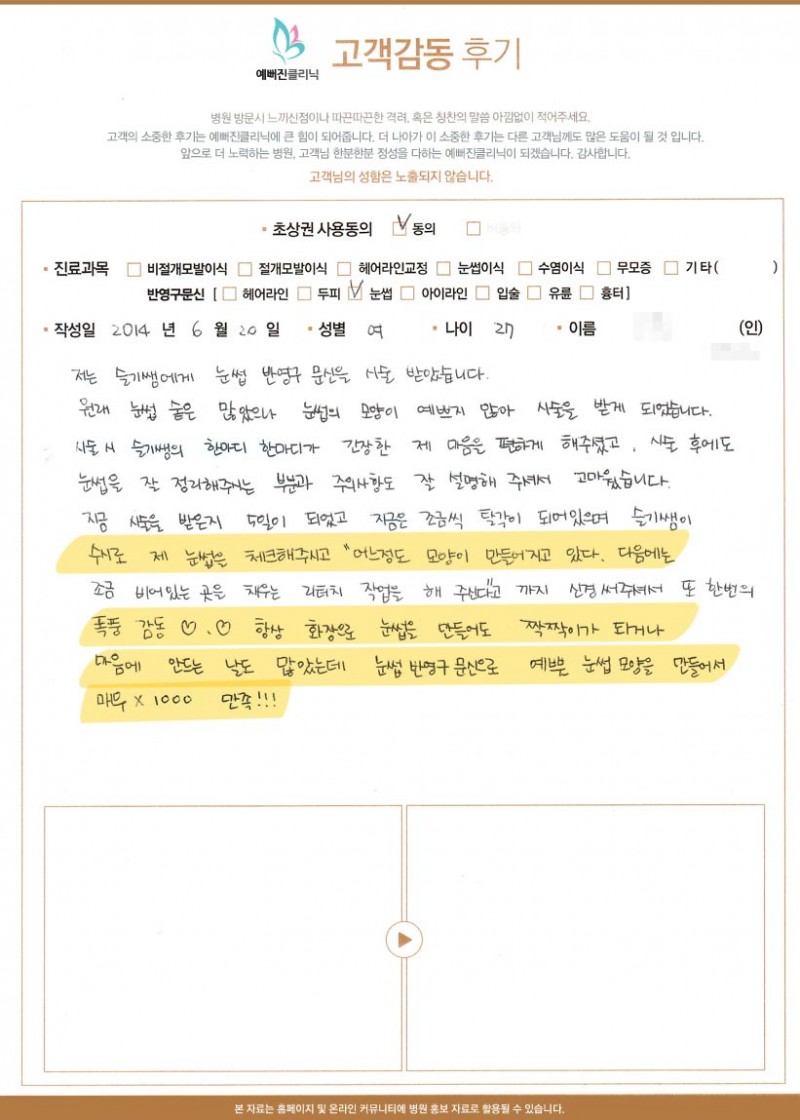 예뻐진클리닉
고객감동 후기
병원 방문시 느끼신점이나 따끈따끈한 격려, 혹은 칭찬의 말씀 아낌없이 적어주세요.
고객의 소중한 후기는 예뻐진클리닉에 큰 힘이 되어줍니다. 더 나아가 이 소중한 후기는 다른 고객님께도 많은 도움이 될 것 입니다.
앞으로 더 노력하는 병원, 고객님 한분한분 정성을 다하는 예뻐진클리닉이 되겠습니다. 감사합니다.
고객님의 성함은 노출되지 않습니다.
• 초상권 사용동의 ☑ 동의 ☐
• 진료과목 ☐ 비절개모발이식 ☐ 절개모발이식 ☐ 헤어라인교정 ☐ 눈썹이식 ☐ 수염이식 ☐ 무모증 ☐ 기타( )
반영구문신 [ ☐ 헤어라인 ☐ 두피 ☑ 눈썹 ☐ 아이라인 ☐ 입술 ☐ 유륜 ☐ 흉터 ]
• 작성일 2014 년 6 월 20 일 • 성별 여 • 나이 27 • 이름 (인)
저는 슬기쌤에게 눈썹 반영구 문신을 시술 받았습니다.
원래 눈썹 숱은 많았으나 눈썹의 모양이 예쁘지 않아 시술을 받게 되었습니다.
시술 시 슬기쌤의 한마디 한마디가 긴장한 제 마음을 편하게 해주셨고, 시술 후에도
눈썹을 잘 정리해주시는 부분과 주의사항도 잘 설명해 주셔서 고마웠습니다.
지금 시술을 받은지 5일이 되었고 지금은 조금씩 탈각이 되어있으며 슬기쌤이
수시로 제 눈썹을 체크해주시고 "어느정도 모양이 만들어지고 있다. 다음에는
조금 비어있는 곳을 채우는 리터치 작업을 해 주신다"고 까지 신경써주셔서 또 한번의
폭풍 감동 ♡.♡ 항상 화장으로 눈썹을 만들어도 짝짝이가 되거나
마음에 안드는 날도 많았는데 눈썹 반영구 문신으로 예쁜 눈썹 모양을 만들어서
매우 X 1000 만족!!!
본 자료는 홈페이지 및 온라인 커뮤니티에 병원 홍보 자료로 활용될 수 있습니다.